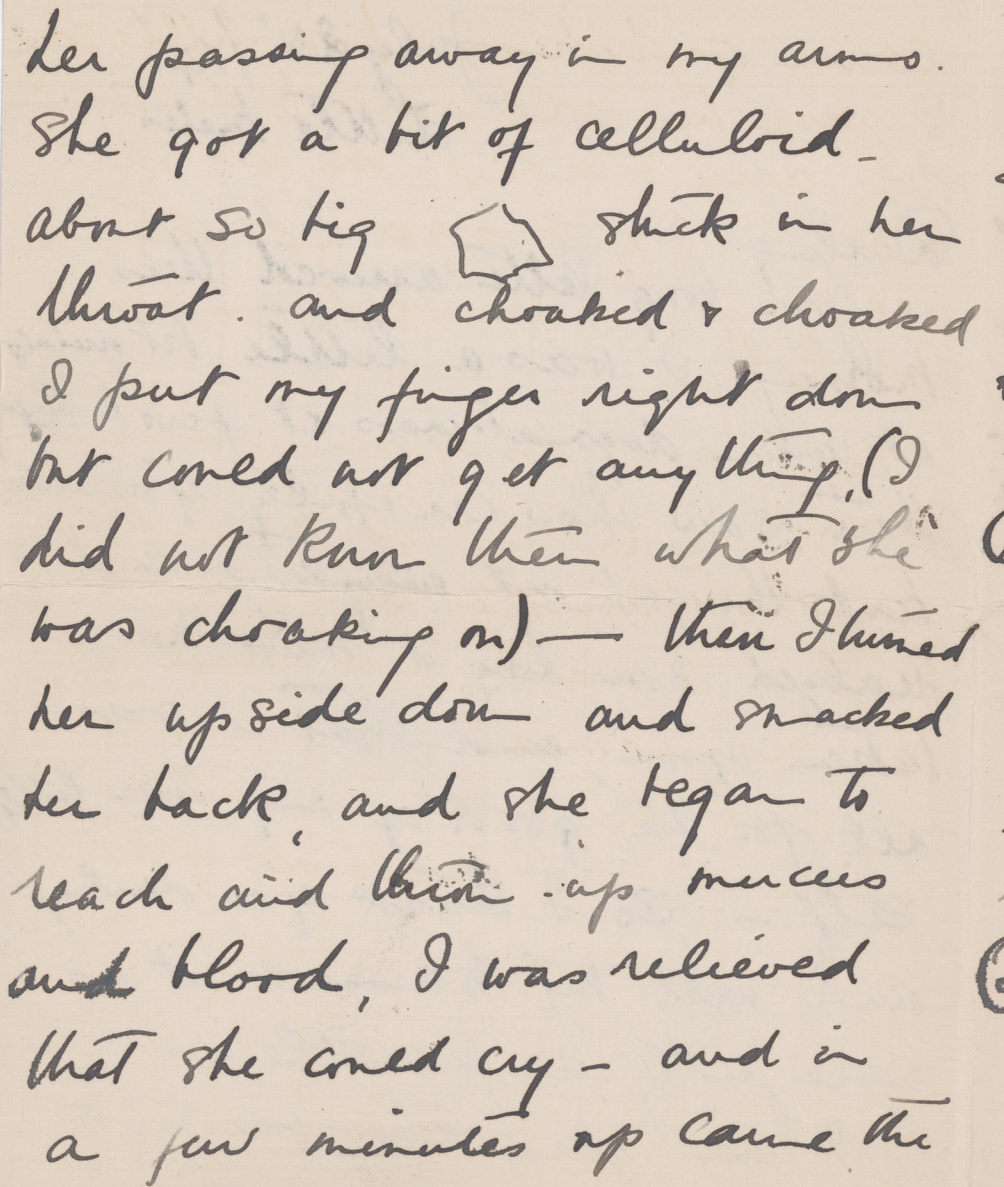 her passing away in my arms.
She got a bit of celluloid -
about so big stuck in her
throat. and choaked & choaked
I put my finger right down
but could not get anything, (I
did not know then what she
was choaking on) — then I turned
her upside down and smacked
her back, and she began to
reach and throw up mucus
and blood, I was relieved
that she could cry - and in
a few minutes up came the